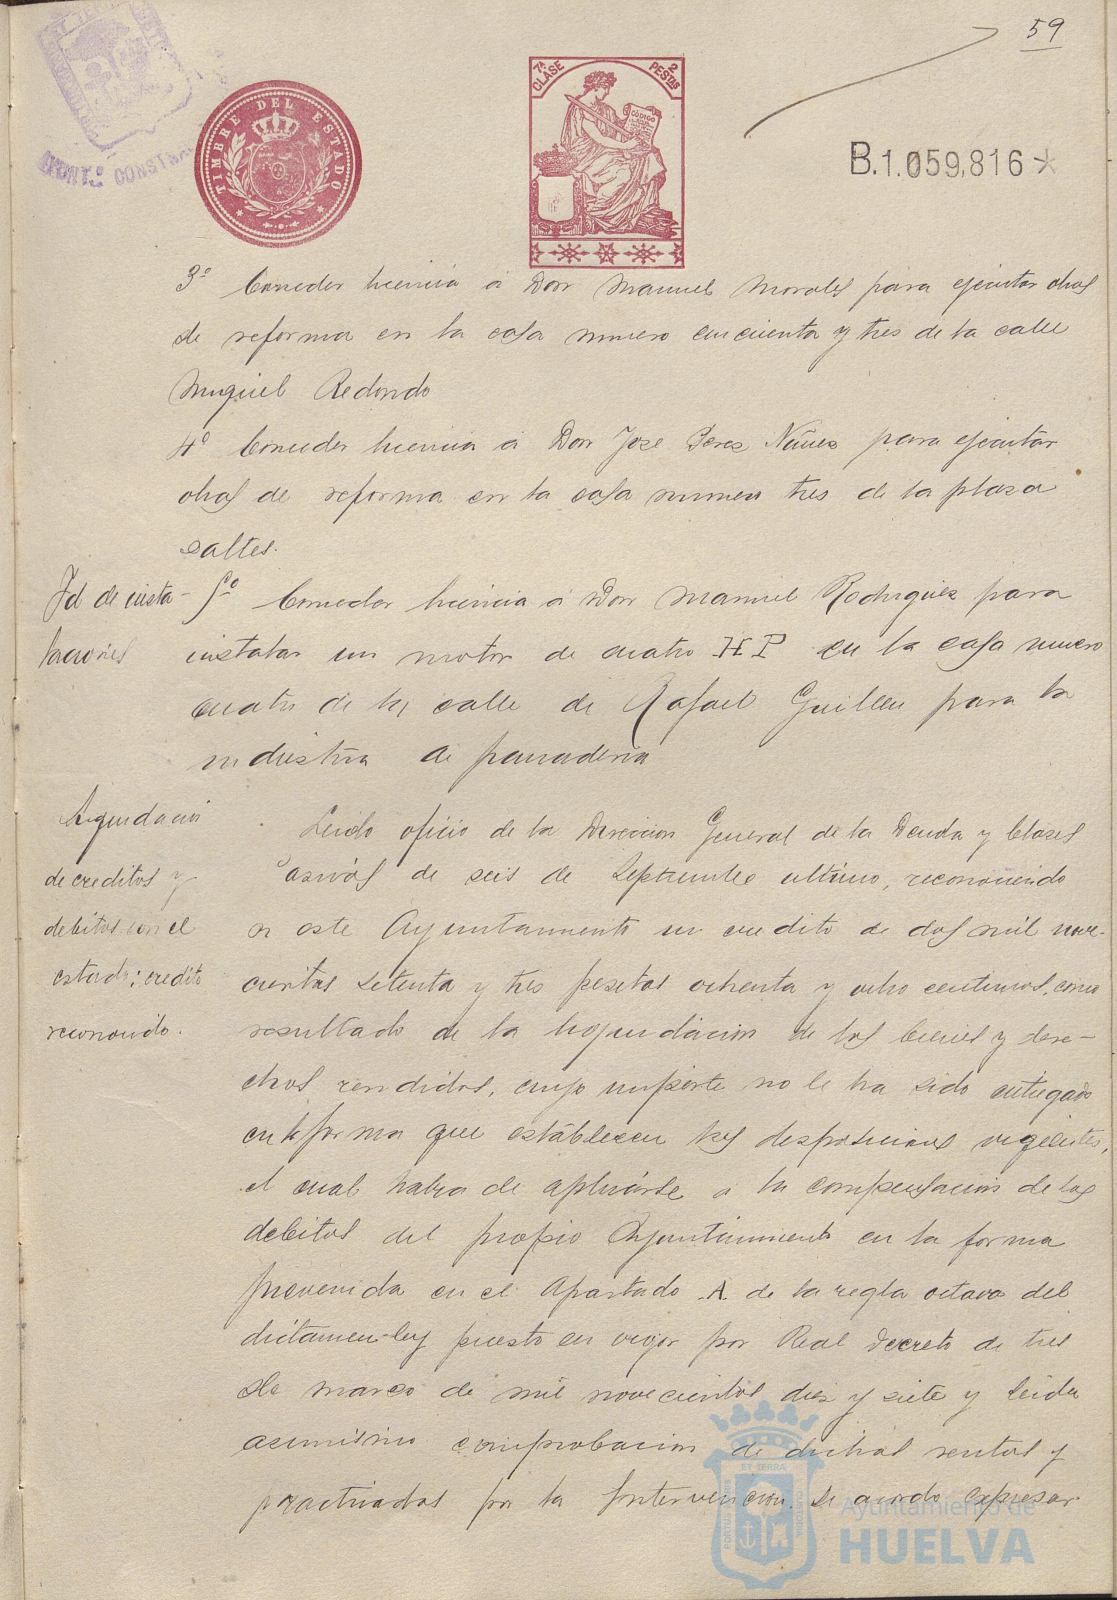 59
TIMBRE DEL ESTADO
7ª CLASE
2 PESTAS
CÓDIGO
B.1.059,816*
CONST
3º Conceder licencia á Don Manuel Morales para ejecutar obras
de reforma en la casa numero cincuenta y tres de la calle
Miguel Redondo
4º Conceder licencia á Don Jose Perez Nuñez para ejecutar
obras de reforma en la casa numero tres de la plaza
Saltes.
Id de insta-
laciones
5º Conceder licencia á Don Manuel Rodriguez para
instalar un motor de cuatro HP en la casa numero
cuatro de la calle de Rafael Guillen para la
industria de panaderia
Liquidación
de creditos y
debitos con el
estado; credito
reconocido.
Leido oficio de la Dirección General de la Deuda y Clases
Pasivas de seis de Septiembre ultimo, reconociendo
a este Ayuntamiento un credito de dos mil nove-
cientas setenta y tres pesetas ochenta y ocho centimos, como
resultado de la liquidación de los bienes y dere-
chos vendidos, cuyo importe no le ha sido entregado
en la forma que establecen las disposiciones vigentes,
el cual habra de aplicarse a la compensación de los
debitos del propio Ayuntamiento en la forma
prevenida en el Apartado A de la regla octava del
dictamen-ley puesto en vigor por Real decreto de tres
de marzo de mil novecientos diez y siete y leida
asimismo comprobacion de dichas rentas y
practicadas por la Intervención. Se acordo expresar
Ayuntamiento de
HUELVA